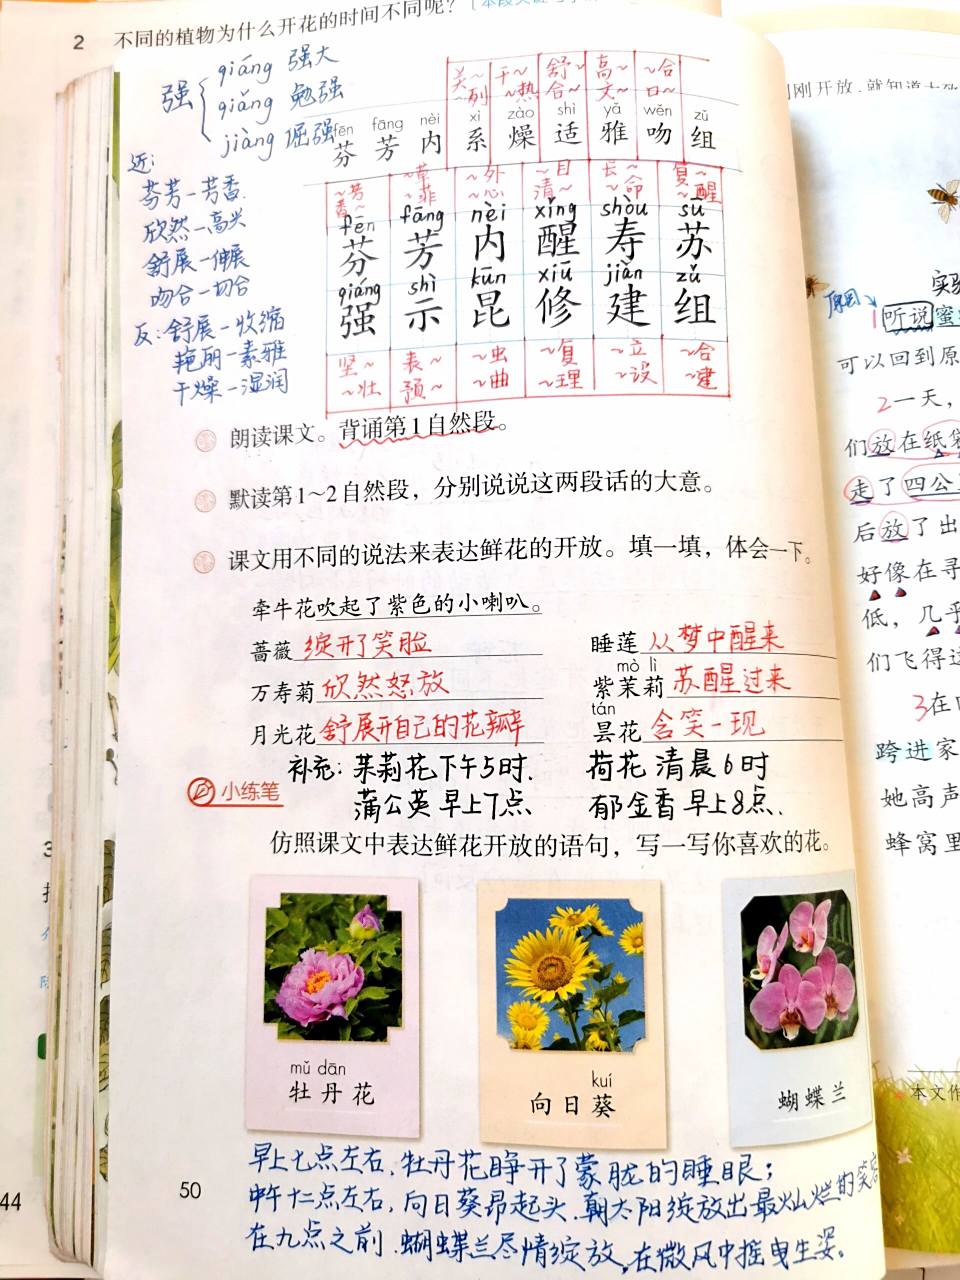 2 不同的植物为什么开花的时间不同呢？
强 qiáng 强大
qiǎng 勉强
jiàng 倔强
近：
芬芳—芳香
欣然—高兴
舒展—伸展
吻合—切合
反：舒展—收缩
艳丽—素雅
干燥—湿润
关～ 干～ 舒～ 高～ ～合
～列 ～热 ～合 ～文 ～口
fēn fāng nèi xì zào shì yǎ wěn zǔ
芬 芳 内 系 燥 适 雅 吻 组
～芳 ～草 ～外 ～目 长～ 复～
香～ ～菲 ～心 清～ ～命 ～醒
fēn fāng nèi xǐng shòu sū
芬 芳 内 醒 寿 苏
qiáng shì kūn xiū jiàn zǔ
强 示 昆 修 建 组
坚～ 表～ ～虫 ～复 ～立 ～合
～壮 预～ ～曲 ～理 ～设 ～建
朗读课文。背诵第1自然段。
默读第1~2自然段，分别说说这两段话的大意。
课文用不同的说法来表达鲜花的开放。填一填，体会一下。
牵牛花吹起了紫色的小喇叭。
蔷薇 绽开了笑脸 睡莲 从梦中醒来
mò lì
万寿菊 欣然怒放 紫茉莉 苏醒过来
tán
月光花 舒展开自己的花瓣 昙花 含笑一现
补充：茉莉花下午5时. 荷花 清晨6时
小练笔
蒲公英 早上7点、 郁金香 早上8点.
仿照课文中表达鲜花开放的语句，写一写你喜欢的花。
mǔ dān
牡丹花
kuí
向日葵
蝴蝶兰
早上七点左右，牡丹花睁开了蒙胧的睡眼；
中午十二点左右，向日葵昂起头，朝太阳绽放出最灿烂的笑容
在九点之前，蝴蝶兰尽情绽放，在微风中摇曳生姿。
50
44
刚开放，就知道大致
原因
实验
听说蜜
可以回到原
2一天，
们放在纸袋
走了四公里
后放了出
好像在寻
低，几乎
们飞得这
3在
跨进家
她高声
蜂窝里
本文作